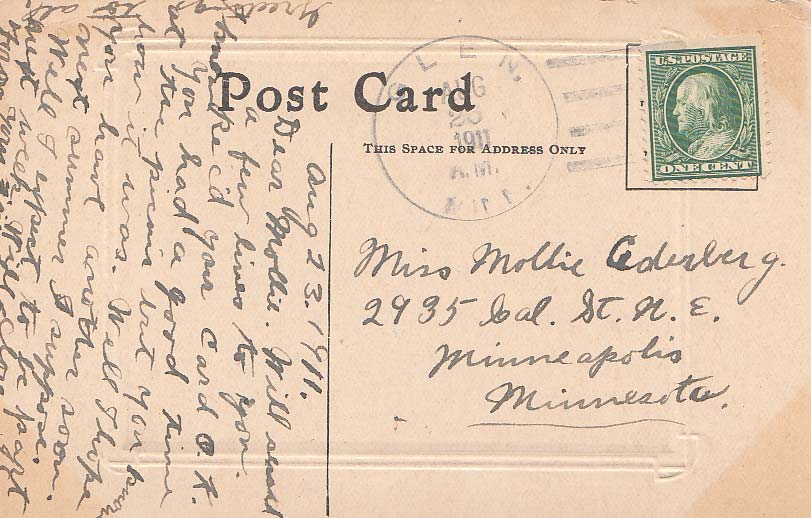 Post Card
THIS SPACE FOR ADDRESS ONLY
U.S. POSTAGE
ONE CENT
GLEN,
AUG
1911
A.M.
Miss Mollie Ederberg.
2935 Cal. St. N. E.
Minneapolis
Minnesota.
Aug 23. 1911.
Dear Mollie. Will send
a few lines to you.
you card O.K.
you had a good time
at the picnic but you know
how it was. Well I hope
you have another
next summer I suppose.
Well I expect to be
next week. Will close
Greetings
to all